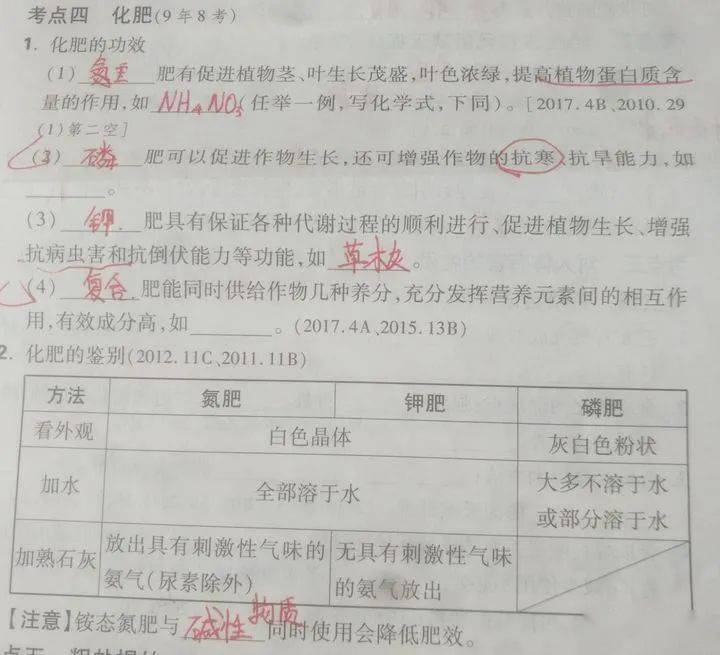 考点四 化肥(9年8考)
1. 化肥的功效
(1) 氮 肥有促进植物茎、叶生长茂盛,叶色浓绿,提高植物蛋白质含
量的作用,如 NH4NO3 (任举一例,写化学式,下同)。[2017.4B、2010.29
(1)第二空]
(2) 磷 肥可以促进作物生长,还可增强作物的抗寒、抗旱能力,如
______。
(3) 钾 肥具有保证各种代谢过程的顺利进行、促进植物生长、增强
抗病虫害和抗倒伏能力等功能,如 草木灰 。
(4) 复合 肥能同时供给作物几种养分,充分发挥营养元素间的相互作
用,有效成分高,如______。(2017.4A、2015.13B)
2. 化肥的鉴别(2012.11C、2011.11B)
方法 氮肥 钾肥 磷肥
看外观 白色晶体 灰白色粉状
加水 全部溶于水 大多不溶于水
或部分溶于水
加熟石灰 放出具有刺激性气味的 无具有刺激性气味
氨气(尿素除外) 的氨气放出
【注意】铵态氮肥与 碱性物质 同时使用会降低肥效。